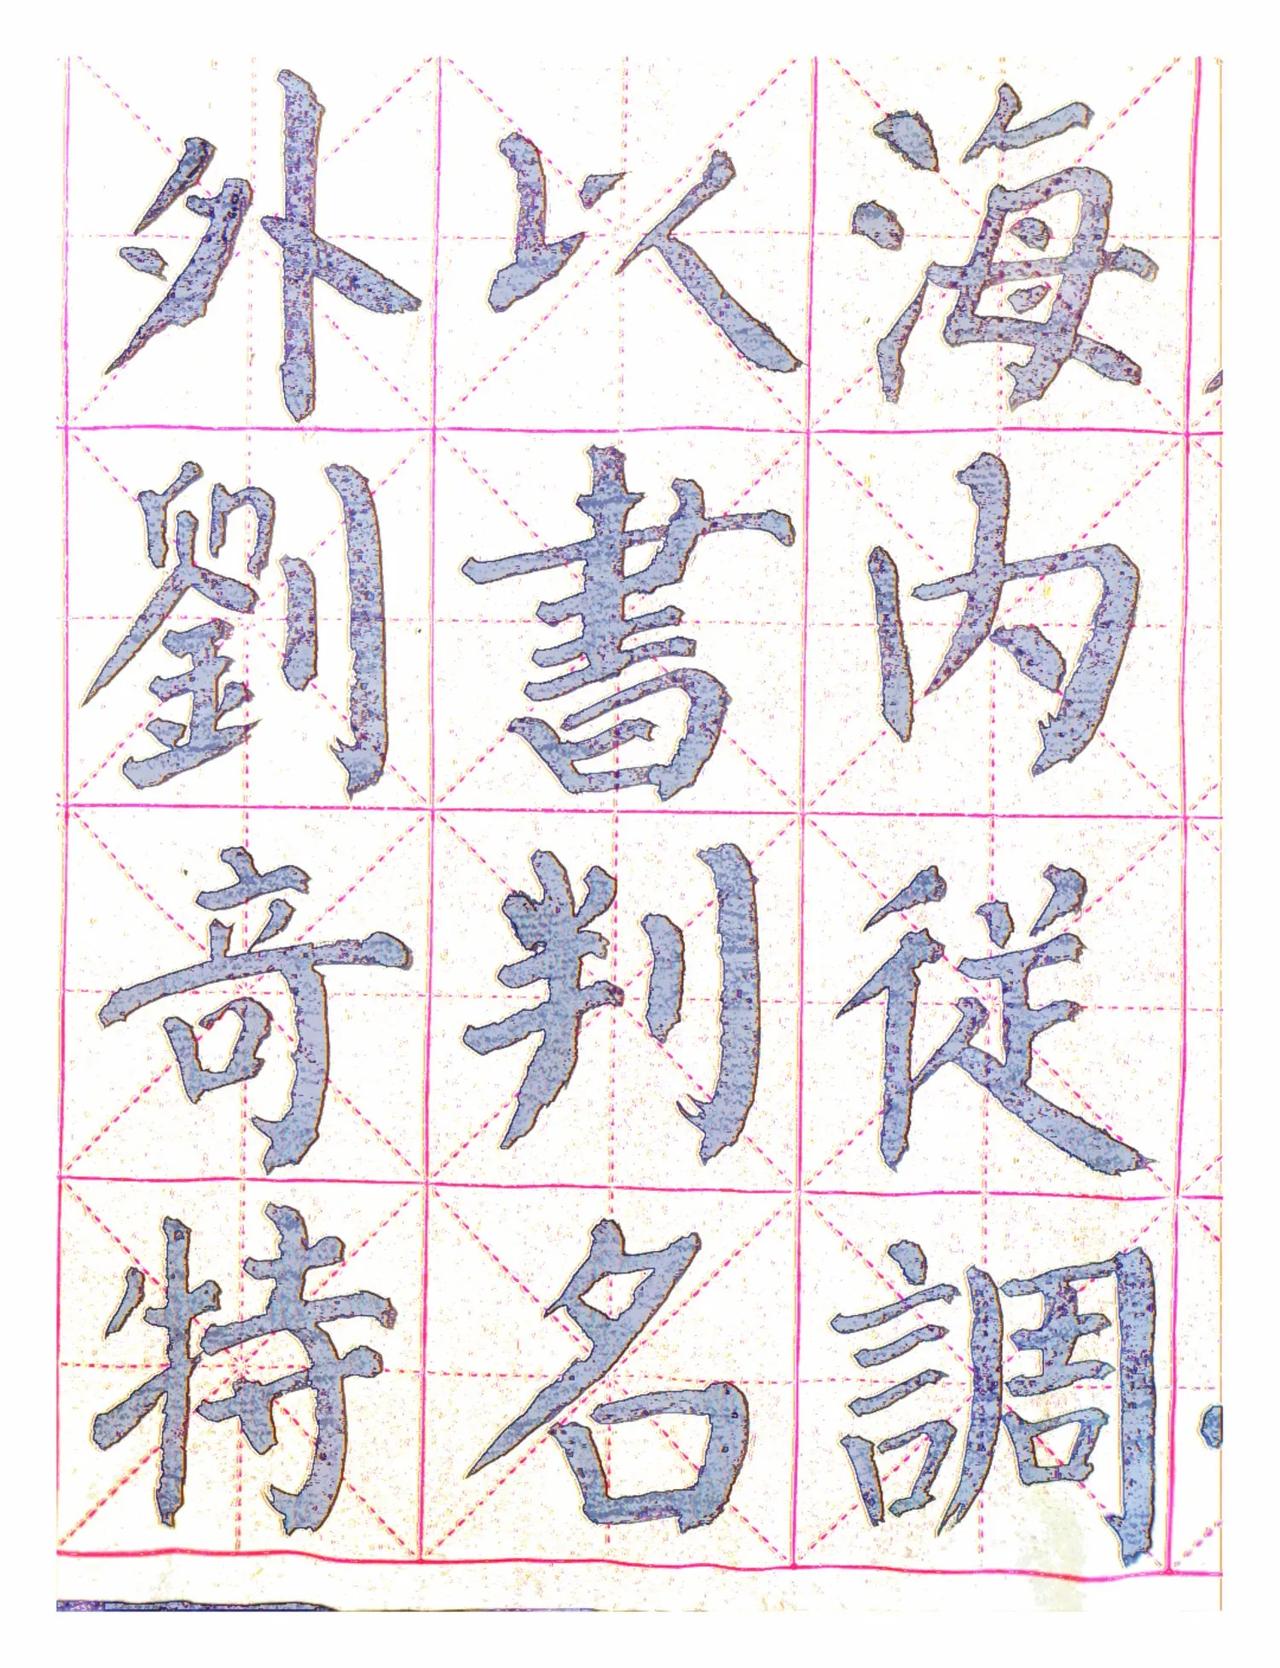 海内從調
以書判名
外劉奇特